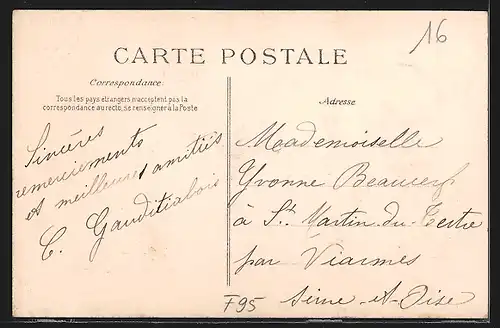 16
CARTE POSTALE
Correspondance
Tous les pays étrangers n'acceptent pas la
correspondance au recto, se renseigner à la Poste
Adresse
Sincères
remerciements
et meilleures amitiés
C.
Mademoiselle
Yvonne
à St Martin-du-Tertre
par Viarmes
Seine-et-Oise
F95